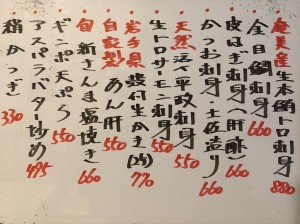 奄美産生本鮪トロ刺身 880
金目鯛刺身 660
皮はぎ刺身(肝酢) 660
かつお刺身・土佐造り 660
天然活〆平政刺身 550
生トロサーモン刺身 550
岩手県殻付生かき(2ケ) 770
自家製あん肝 550
旬新さんま塩焼き 660
ギンポ天ぷら 550
アスパラバター炒め 495
稍かっぎ 330